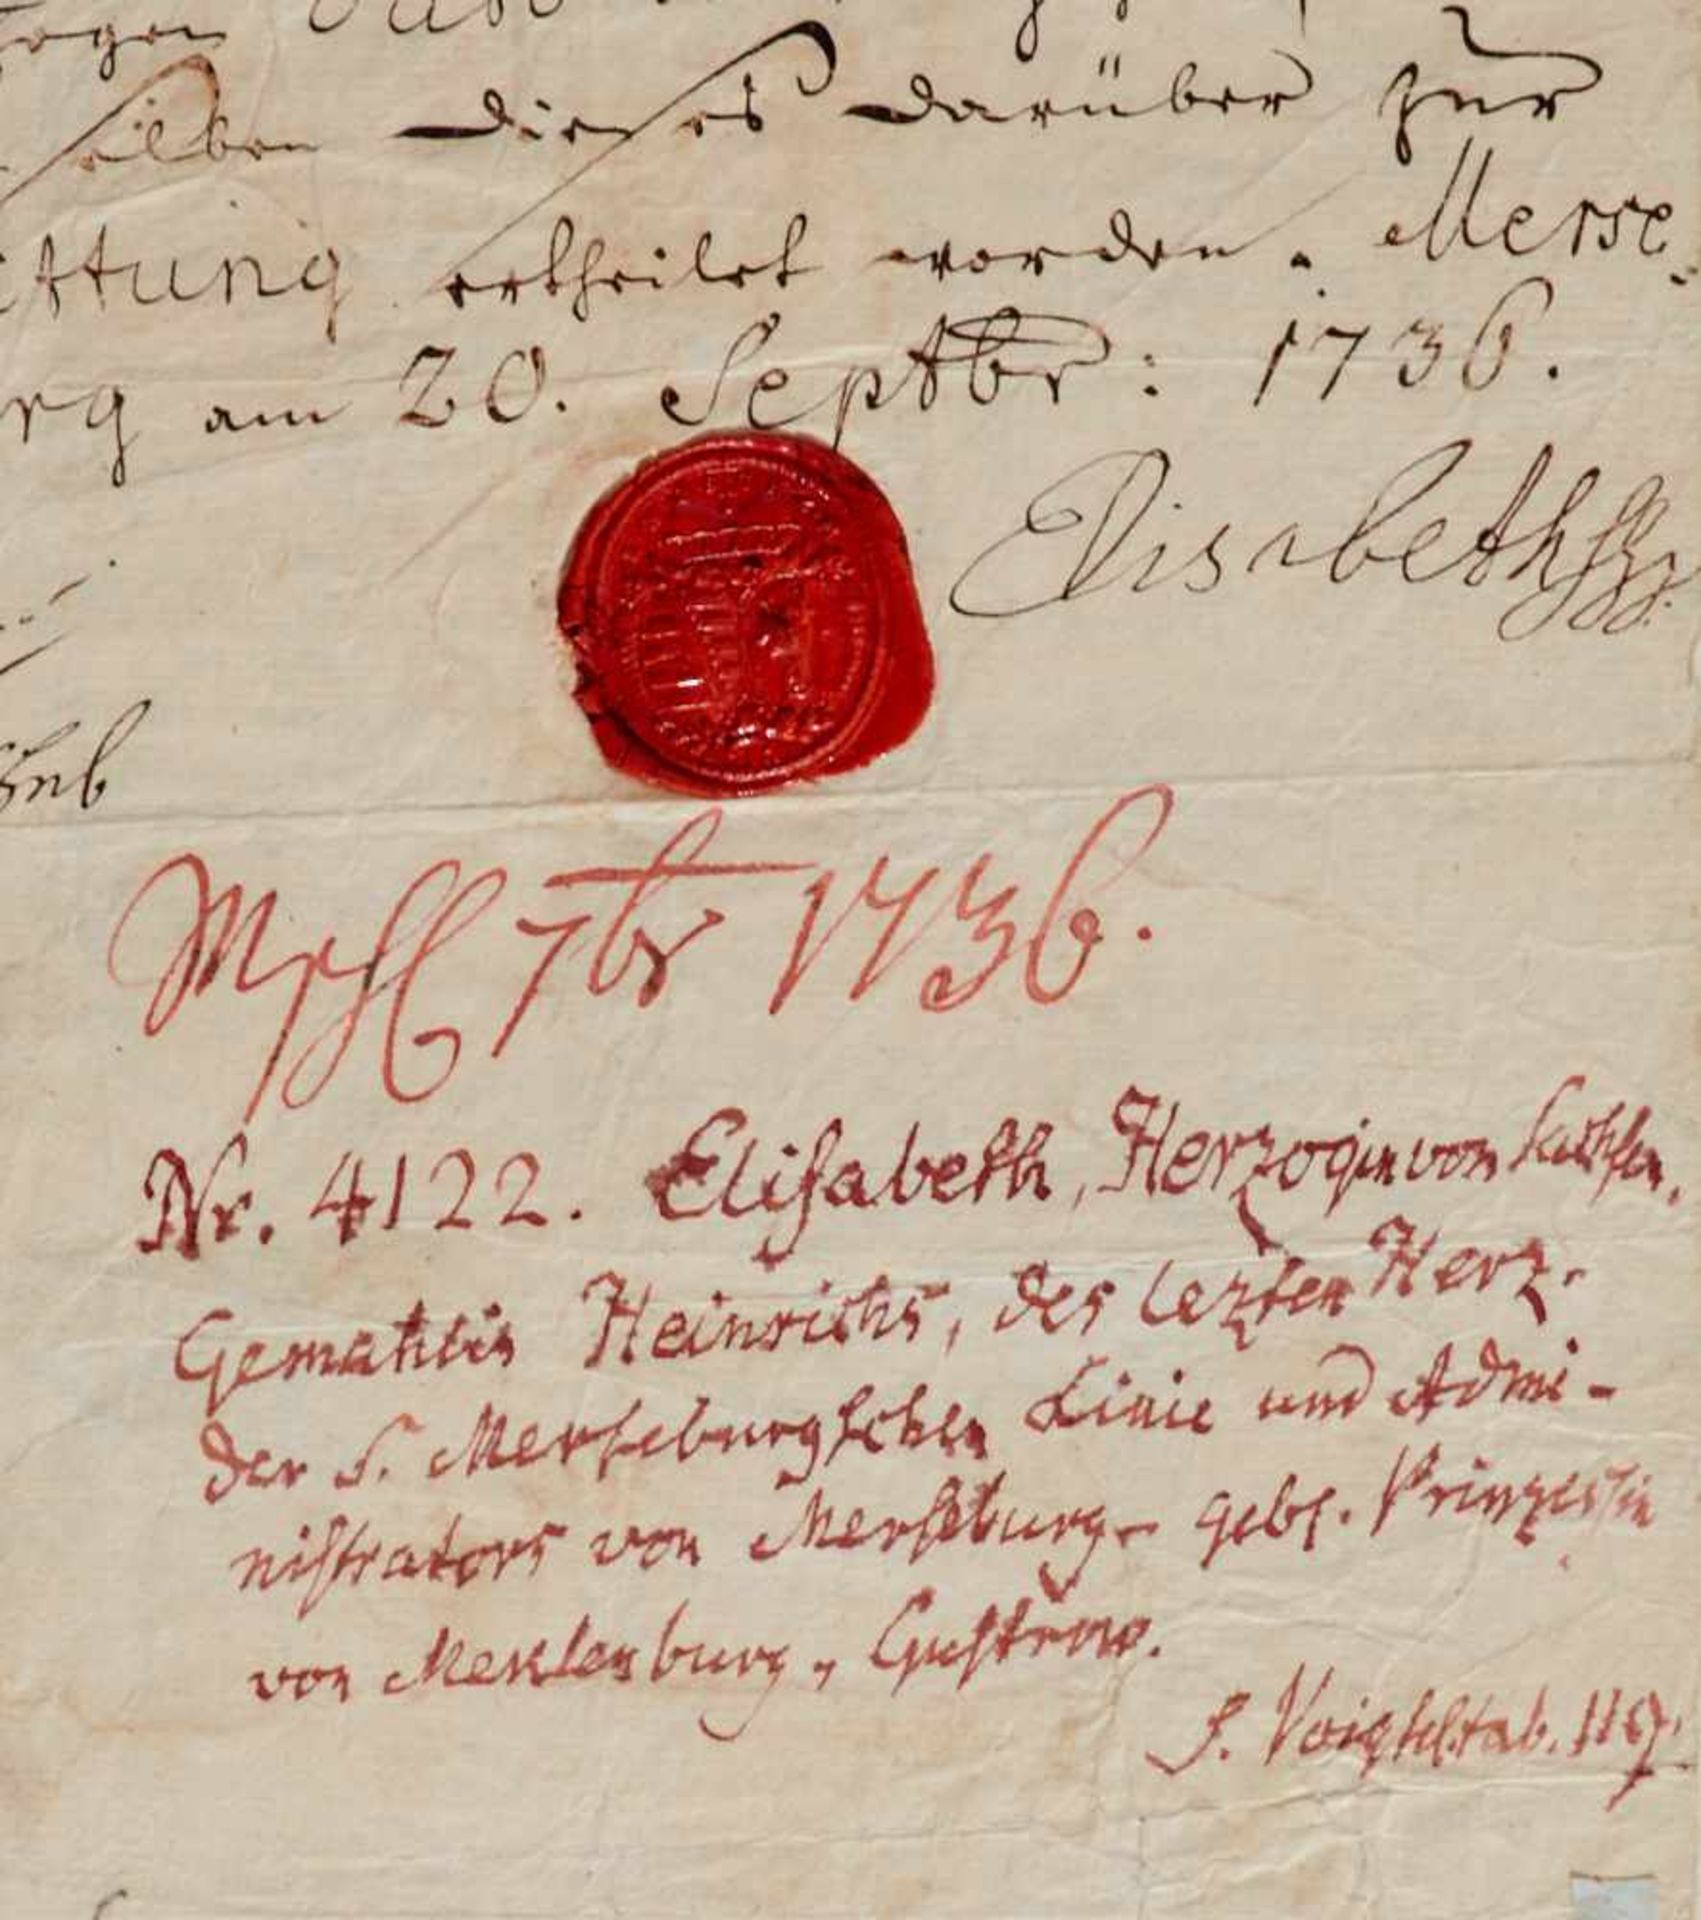 selben dieses darüber zur
ttung ertheilet worden. Merse-
rg am 20. Septbr: 1736.
Elisabeth HzS.
7br 1736.
Nr. 4122. Elisabeth, Herzogin von Sachsen,
Gemahlin Heinrichs, des lezten Herz.
der S. Merseburgschen Linie und Admi-
nistrators von Merseburg - geb. Prinzessin
von Meklenburg-Güstrow.
S. Voigtel tab. 119.